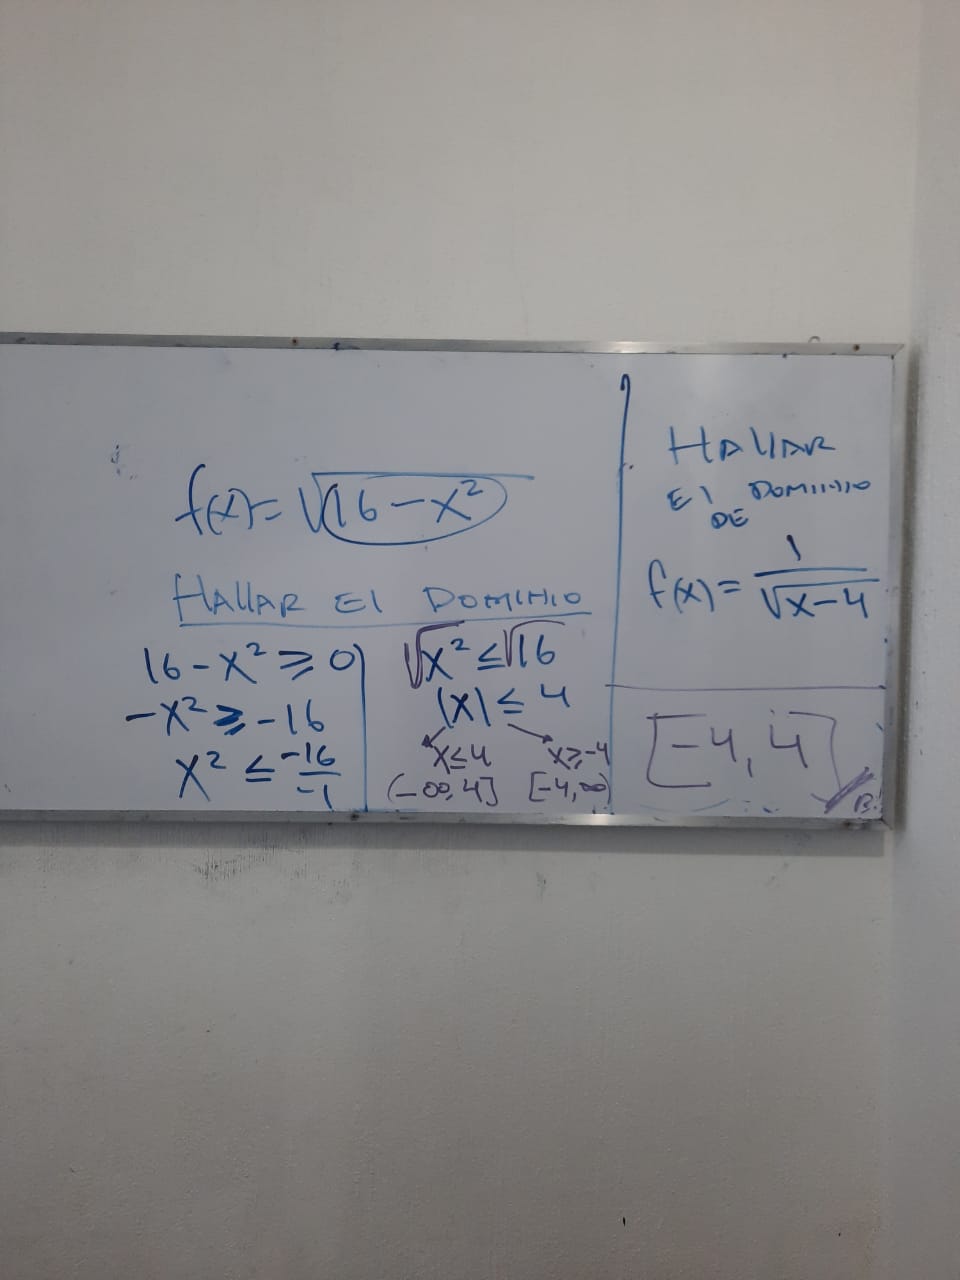 f(x)= √16-x²
HAllAR El DOMINIO
16-x² ⩾ 0
-x² ⩾ -16
x² ≤ -16/-1
√x² ≤ √16
|x| ≤ 4
x≤4 x⩾-4
(-∞,4] [-4,∞)
HAllAR
El DOMINIO
DE
f(x)= 1/√x-4
[-4, 4]
R.